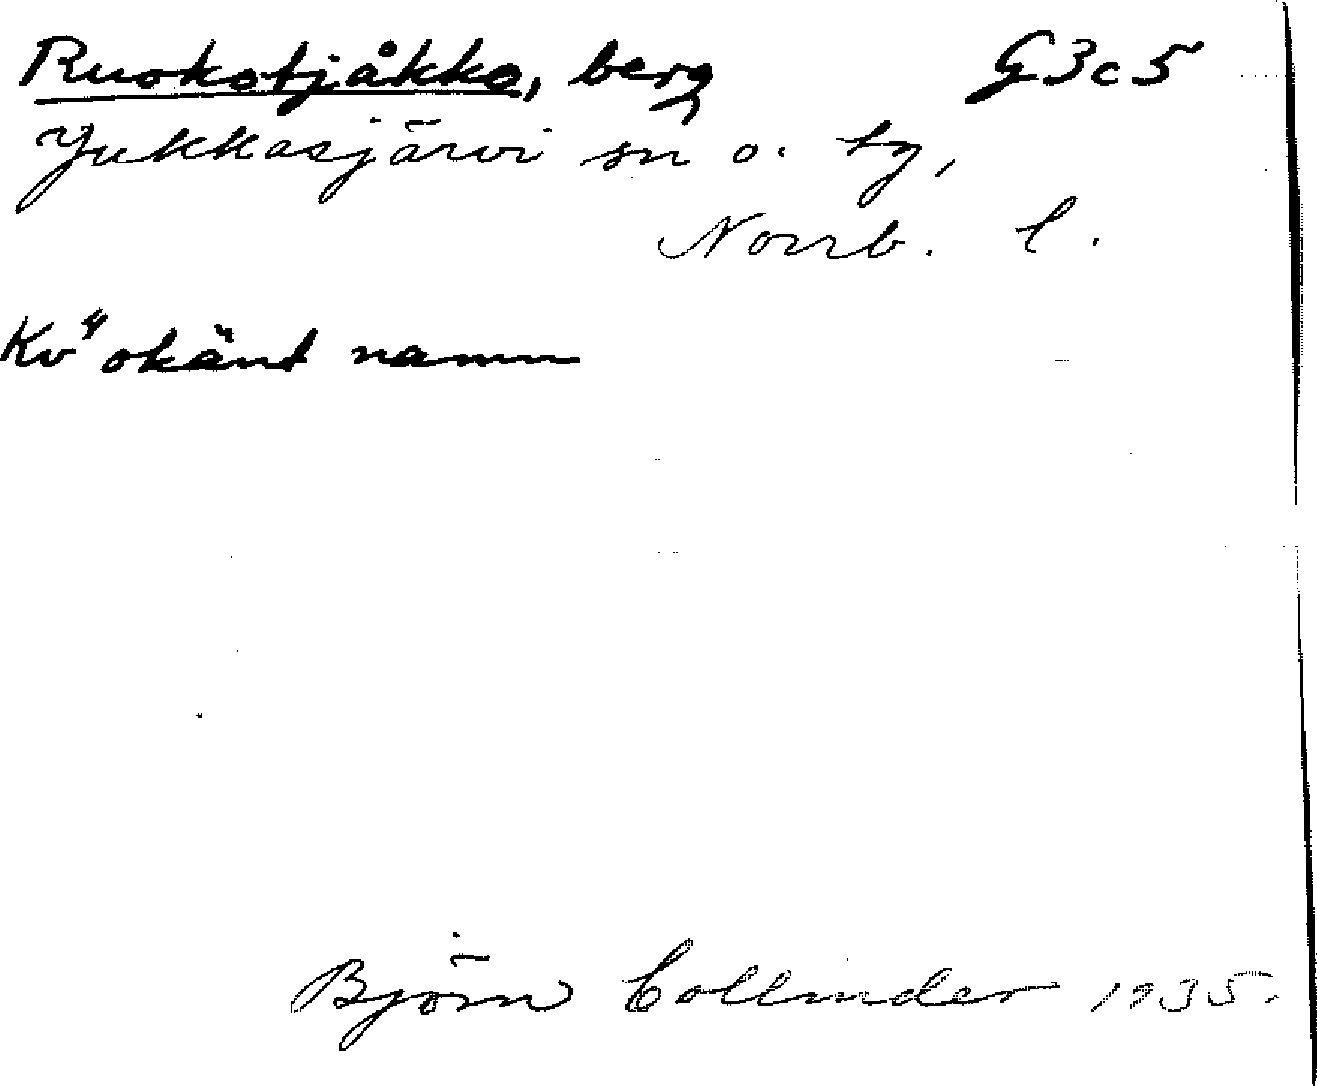 Ruokotjåkko, berg G3c5
Jukkasjärvi sn o. tg,
Norrb. l.
Kv4 okänt namn
Björn Collinder 1935.